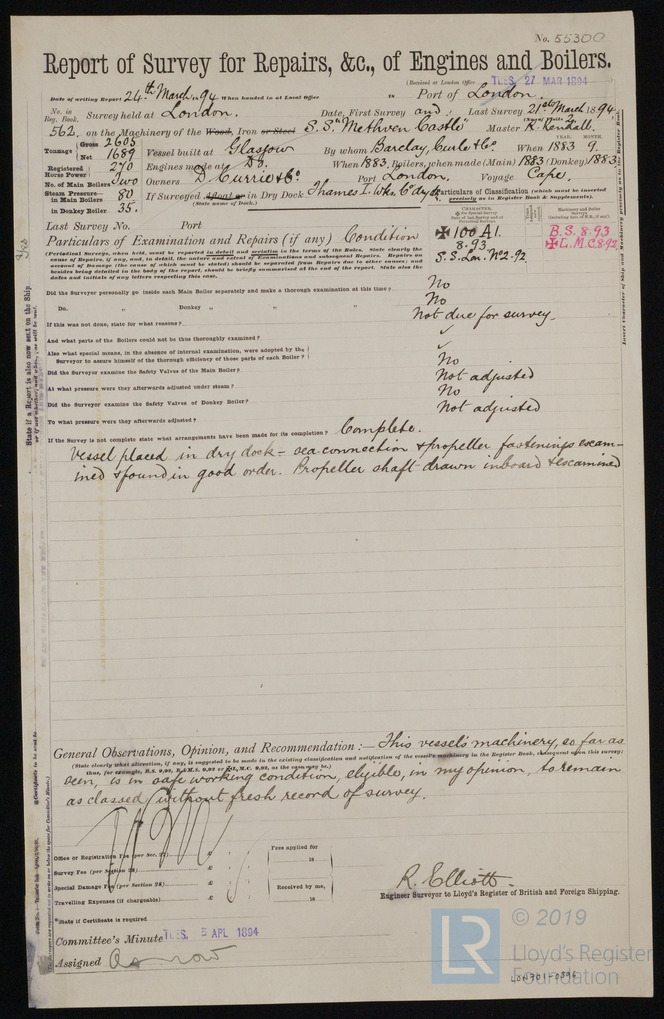 No. 55300
Report of Survey for Repairs, &c., of Engines and Boilers.
(Received at London Office TUES. 27 MAR 1894
Date of writing Report 24th March 94 When handed in at Local Office Port of London.
No. in Reg. Book. Survey held at London. Date, First Survey and Last Survey 21st March 1894
562. on the Machinery of the Wood, Iron or Steel S.S. "Methven Castle" Master R. Rendall.
Tonnage Gross 2605 Net 1689 Vessel built at Glasgow By whom Barclay, Curle & Co. When 1883 9.
Registered Horse Power 270 Engines made at Do. When 1883. Boilers, when made (Main) 1883 (Donkey) 1883
No. of Main Boilers Two Owners D. Currie & Co. Port London. Voyage Cape.
Steam Pressure in Main Boilers 80 If Surveyed Afloat or in Dry Dock Thames I. Wks. Co. dry dk.
(State name of Dock.)
in Donkey Boiler 35.
Particulars of Classification (which must be inserted precisely as in Register Book & Supplements).
Last Survey No. Port
Particulars of Examination and Repairs (if any) Condition
✠ 100 A1. 8.93 S.S. Lon. No 2-92
B.S. 8.93 ✠ L.M.C 8.92
Did the Surveyor personally go inside each Main Boiler separately and make a thorough examination at this time? No
Do. " Donkey " " " No
If this was not done, state for what reasons? Not due for survey.
And what parts of the Boilers could not be thoroughly examined? ✓
Also what special means, in the absence of internal examination, were adopted by the Surveyor to assure himself of the thorough efficiency of those parts of each Boiler? ✓
Did the Surveyor examine the Safety Valves of the Main Boiler? No
At what pressure were they afterwards adjusted under steam? Not adjusted
Did the Surveyor examine the Safety Valves of Donkey Boiler? No
To what pressure were they afterwards adjusted? Not adjusted
If the Survey is not complete state what arrangements have been made for its completion? Complete.
Vessel placed in dry dock - sea connection & propeller fastenings exam-
ined & found in good order. Propeller shaft drawn inboard & examined
General Observations, Opinion, and Recommendation:— This vessel's machinery, so far as
(State clearly what alteration, if any, is suggested to be made in the existing classification and notification of the vessel's machinery in the Register Book, consequent upon this survey;
seen, is in safe working condition, eligible, in my opinion, to remain
as classed without fresh record of survey.
Office or Registration Fee (per Sec. 27) £
Fees applied for
18
Survey Fee (per Section 28) £
Special Damage Fee (per Section 28) £
Received by me,
Travelling Expenses (if chargeable) £
18
R. Elliott.
Engineer Surveyor to Lloyd's Register of British and Foreign Shipping.
*State if Certificate is required
Committee's Minute TUES. 3 APL 1894
Assigned As now
© 2019
LR
Lloyd's Register
Foundation
LON701-0396